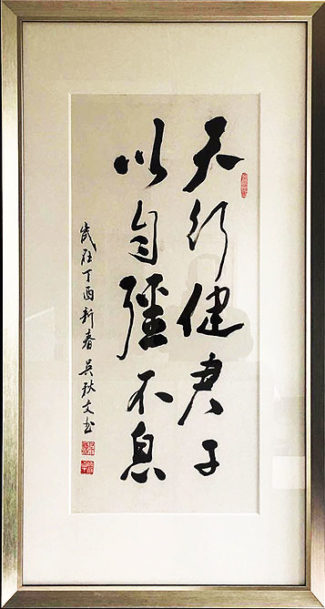 天行健君子
以自彊不息
歲在丁酉新春吳秋文书